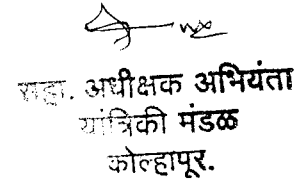 सहा. अधीक्षक अभियंता
यांत्रिकी मंडळ
कोल्हापूर.